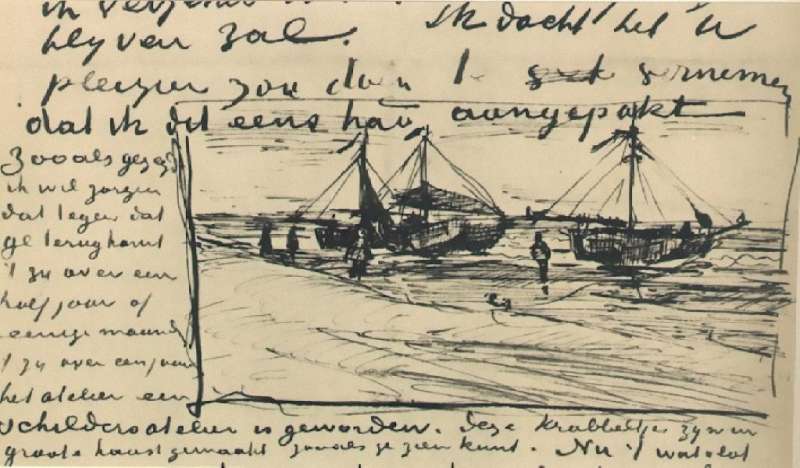 ik
blyven zal. Ik dacht het U
plezier zou doen te vernemen
dat ik dit eens had aangepakt
Zooals gezegd
ik wil zorgen
dat tegen dat
ge terugkomt
't zy over een
half jaar of
eenige maand
't zy over een jaar
het atelier een
schildersatelier is geworden. Deze krabbeltjes zyn in
groote haast gemaakt zooals ge zien kunt. Nu 't wat vlot